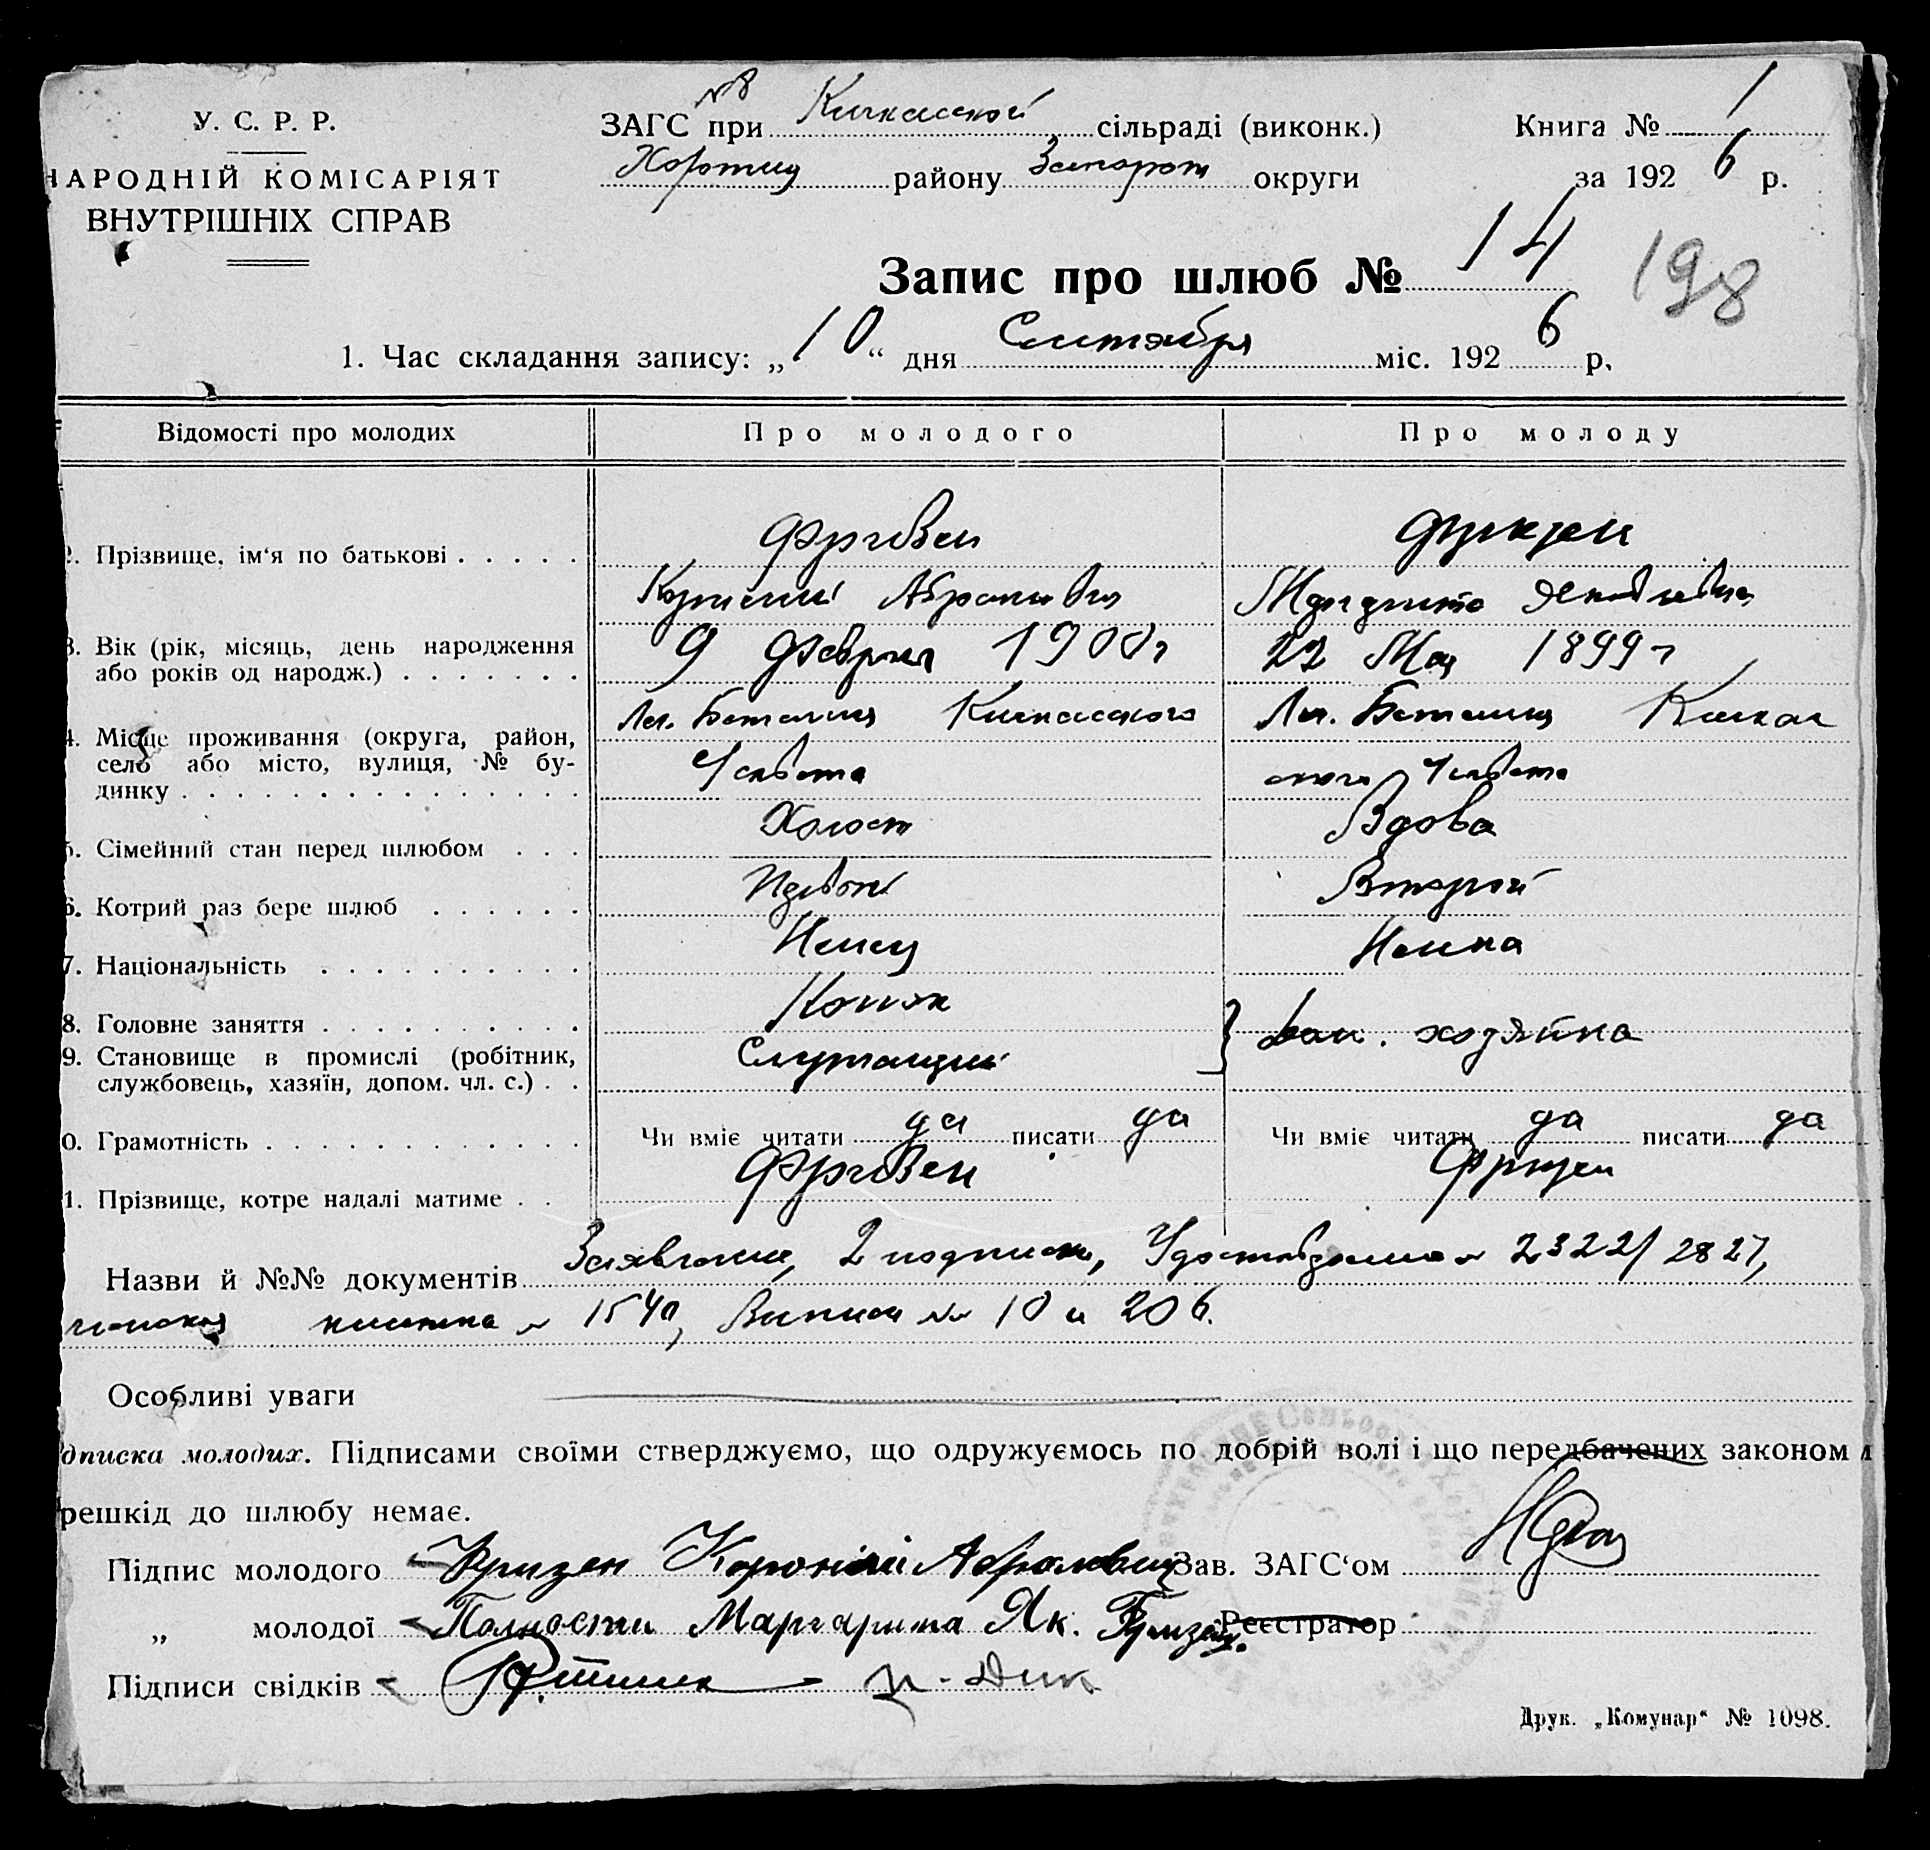 У. С. Р. Р.
НАРОДНІЙ КОМІСАРІЯТ
ВНУТРІШНІХ СПРАВ
№8
ЗАГС при Кичкасской сільраді (виконк.)
Хортиц району Запорож округи
Книга № 1
за 1926 р.
Запис про шлюб № 14
198
1. Час складання запису: „10“ дня Сентября міс. 1926 р.
Відомості про молодих Про молодого Про молоду
2. Прізвище, ім‘я по батькові
Корнелий Абрамович Маргарита Яковлевна
3. Вік (рік, місяць, день народження
або років од народж.)
9 Февраля 1900г 22 Мая 1899г
4. Місце проживання (округа, район,
село або місто, вулиця, № бу-
динку
Кичкасского Кичкас
с/совета ского с/совета
5. Сімейний стан перед шлюбом Холост Вдова
6. Котрий раз бере шлюб Первый Второй
7. Національність Немец Немка
8. Головне заняття Конюх
9. Становище в промислі (робітник,
службовець, хазяїн, допом. чл. с.)
Служащий } дом. хозяйка
0. Грамотність Чи вміє читати да писати да Чи вміє читати да писати да
1. Прізвище, котре надалі матиме
Назви й №№ документів Заявление, 2 подписки, Удостоверение № 2322/2827,
книжка № 1540, Выписи №№ 10 и 206.
Особливі уваги
дписка молодих. Підписами своїми стверджуємо, що одружуємось по добрій волі і що передбачених законом
решкід до шлюбу немає.
Підпис молодого Корнелий Абрамович Зав. ЗАГС‘ом
„ молодої Маргарита Як. Реєстратор
Підписи свідків Дик
Друк. „Комунар“ № 1098.